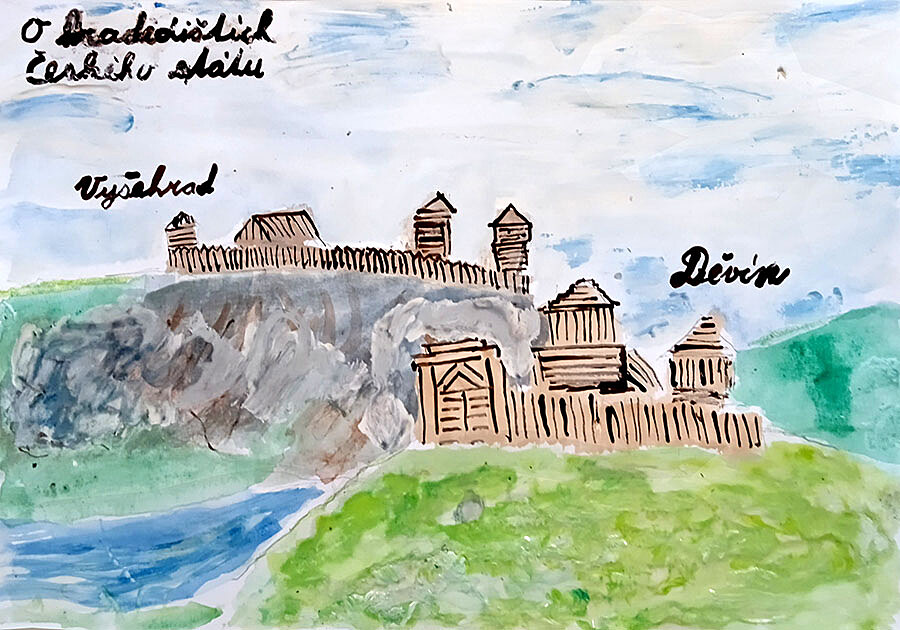 O hradištích
Českého státu
Vyšehrad
Děvín